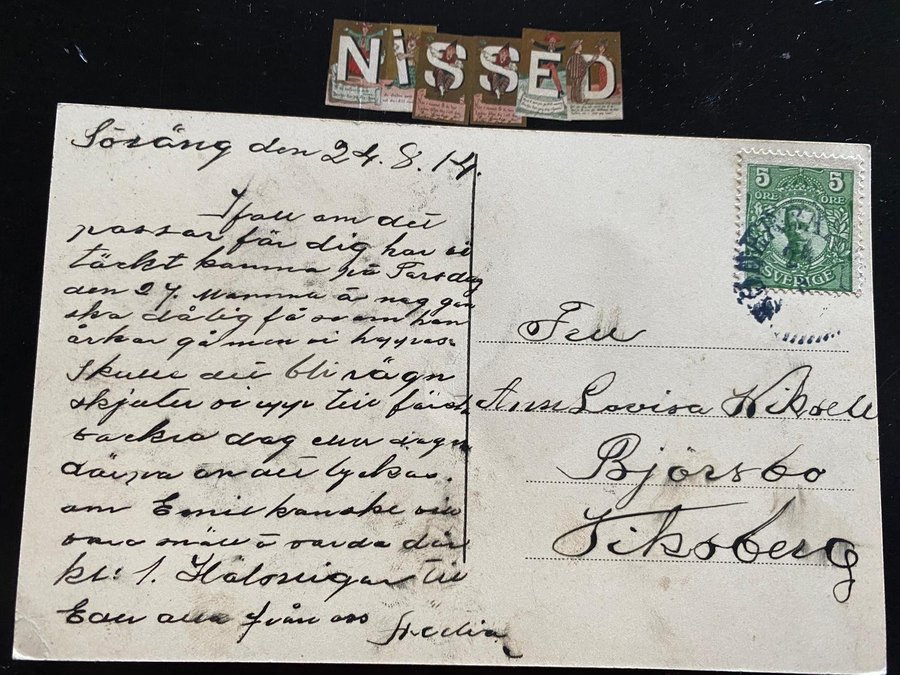 NiSSED
Sösäng den 24.8.14.
Ifall om det
passar för dig har vi
täckt kamma på Torsdag
den 27. Mamma ä nog gan
ska dålig få se om han
årkar gå men vi hoppas.
Skulle det bli rägn
skjuter vi upp till först
vackra dag eller dagen
därpå om det lyckas.
om Emil kanske vill
vara snäll å varda där
kl: 1. Hälsningar till
Eder alla från oss
5 5
ÖRE ÖRE
SVERIGE
Fru
Ann Lovisa Wiksell
Björsbo
Viksberg